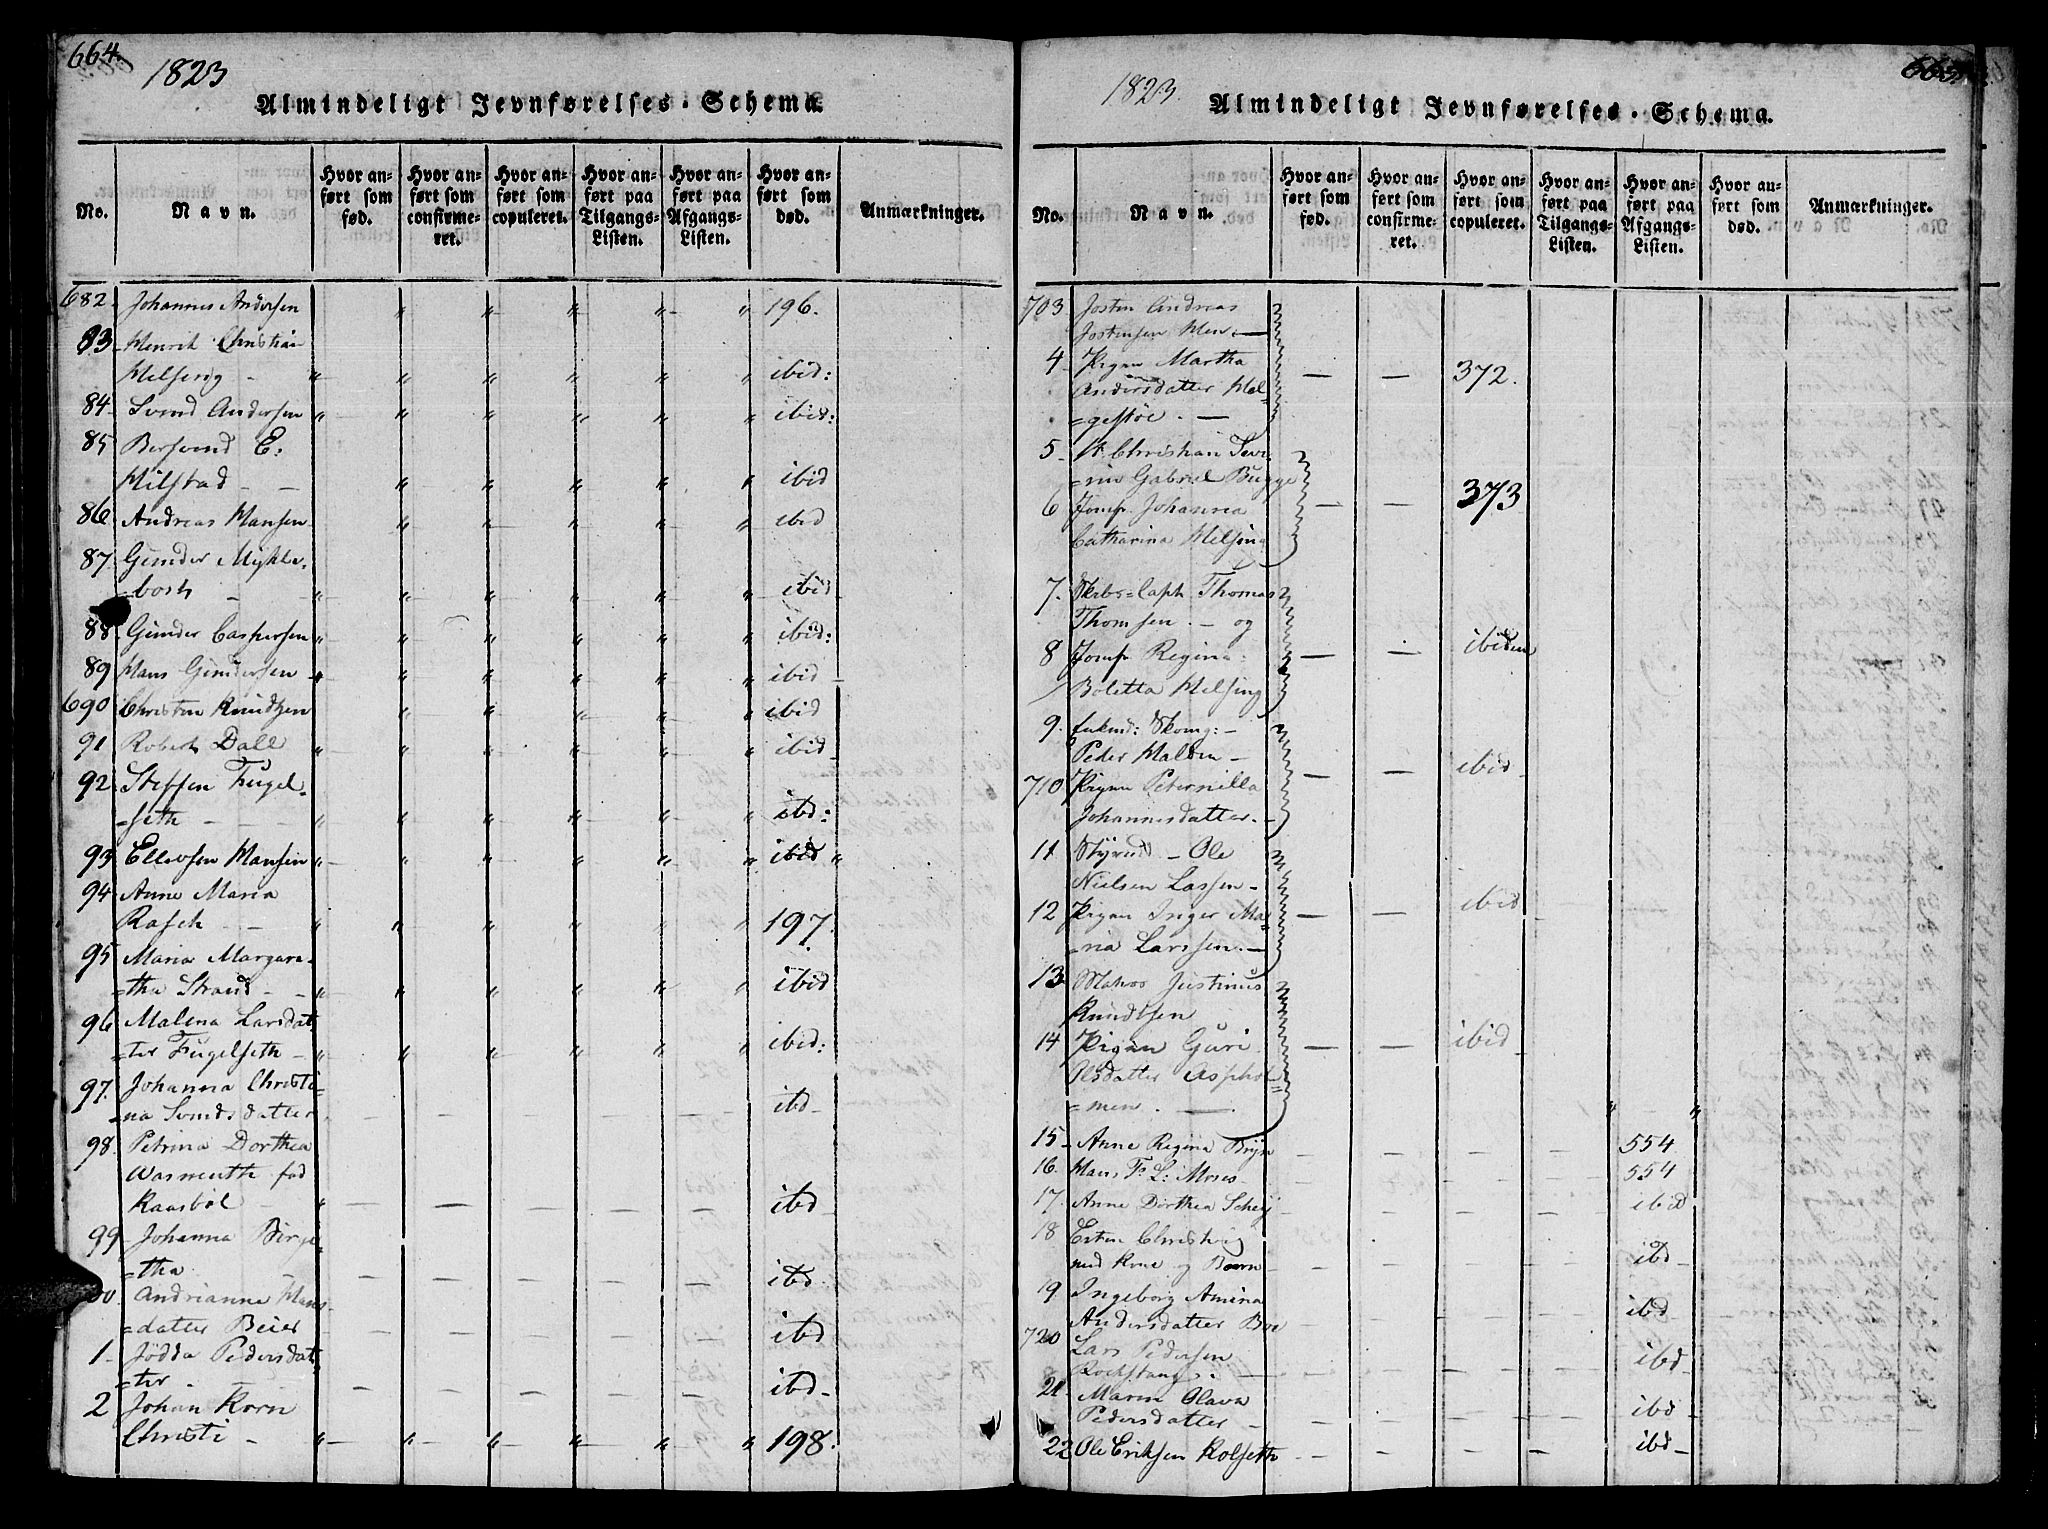 664.
1823
Almindeligt Jevnførelses-Schema.
No.
Navn.
Hvor anført som fød.
Hvor anført som confirmeret.
Hvor anført som copuleret.
Hvor anført paa Tilgangs-Listen.
Hvor anført paa Afgangs-Listen.
Hvor anført som død.
Anmærkninger.
682. Johannes Andersen " " " " " 196.
83 Henrik Christian
Helsing - " " " " " " ibid:
84 Svend Andersen " " " " " " ibid:
85 Bersvend E:
Hilstad - - " " " " " ibid
86 Andreas Hansen " " " " " ibid
87. Gunder Mykle-
=bost - - " " " " " " ibid
88. Gunder Caspersen " " " " " " ibid:
89 Hans Gundersen " " " " " " ibid
690 Christen Knudtzen " " " " " ibid
91 Robert Dall " " " " " " ibid
92 Steffen Fugel-
=seth - - - " " " " " " ibd:
93 Ellevsen Hansen " " " " " " ibid "
94 Anne Maria
Rasch - - " " " " " " 197.
95 Maria Margare-
=tha Strand - " " " " " " ibid
96 Malena Larsdat-
=ter Fugelseth - " " " " " " ibid:
97. Johanna Christi-
=na Svendsdatter - - - - - - ibd-
98. Petrina Dorthea
Wasmuth fød
Raasböl - " - - - - - ibd
99 Johanna Birge-
=tha - - - - - ibd.
00. Andrianne Hans-
=datter Beier - - - - - ibd
1. Jödda Pedersdat-
=ter. - - - - - ibd-
2 Johan Korn
Christi - " " " " " " 198.
665
1823.
Almindeligt Jevnførelses-Schema.
No.
Navn.
Hvor anført som fød.
Hvor anført som confirmeret.
Hvor anført som copuleret.
Hvor anført paa Tilgangs-Listen.
Hvor anført paa Afgangs-Listen.
Hvor anført som død.
Anmærkninger.
703 Josten Andreas
Jostensen
4 Pigen Martha
Andersdatter Hel- - - 372.
=gestöe. -
5 Hr. Christian Seve-
=rin Gabriel Bugge
6 Jomfr. Johanna - - 373
Catharina Helsing
7. Skibs=Capt. Thomas
Thomsen. - og
8 Jomfr Regina - - ibidem
Boletta Helsing
9. Enkmd: Skomg: -
Peder Halden -
710. Pigen Peternilla - - ibid
Johannesdatter. -
11 Styrmd - Ole
Nielsen Lassen -
12 Pigen Inger Ma= - - ibid
=ria Larssen. -
13 Matros Justinus
Knudtsen
14 Pigen Guri - - ibid
Olsdatter Asphol=
=men. -
15 - Anne Regina Bryn - - - - 554
16. Hans F. L: Moses - - - - 554
17. Anne Dorthea Schey - - - - ibid
18 Esten Christvig
med Kone og Börn - - - - ibd
19 Ingeborg Amina
Andersdatter Boe - - - - ibd
720 Lars Pedersen
Rockstang. - - - - ibd
21. Maren Olava
Pedersdatter - - - - ibd
22 Ole Eriksen Kolseth - - - - ibd